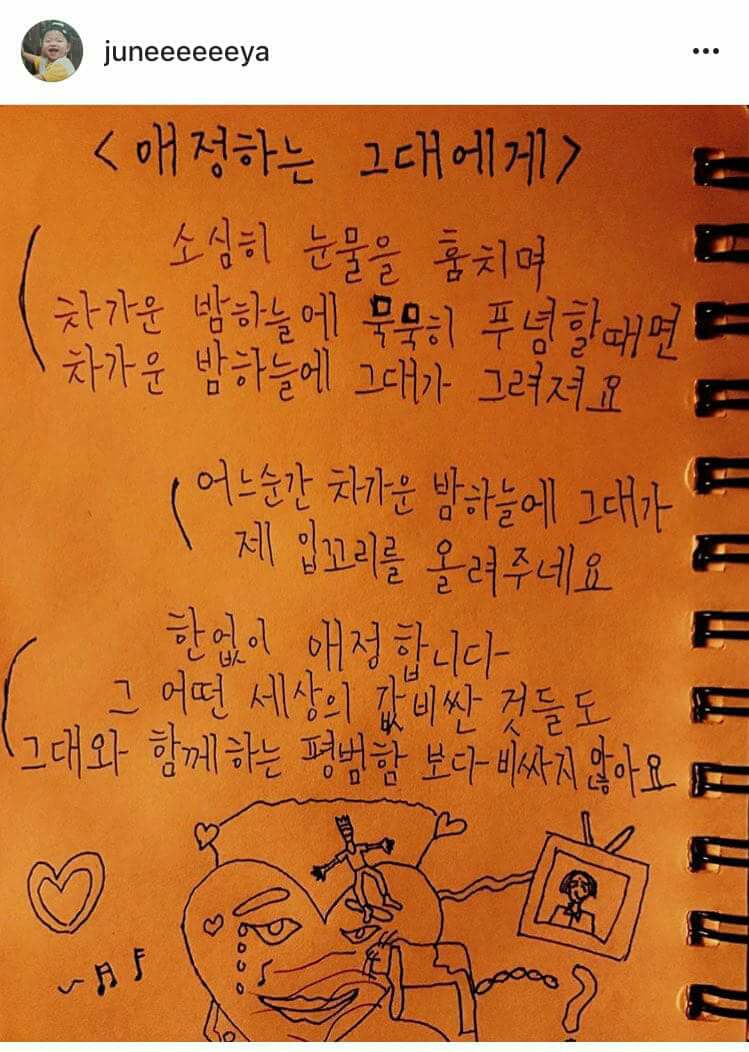 juneeeeeeya
<애정하는 그대에게>
소심히 눈물을 훔치며
차가운 밤하늘에 묵묵히 푸념할때면
차가운 밤하늘에 그대가 그려져요
어느순간 차가운 밤하늘에 그대가
제 입꼬리를 올려주네요
한없이 애정합니다
그 어떤 세상의 값비싼 것들도
그대와 함께하는 평범함 보다 비싸지 않아요